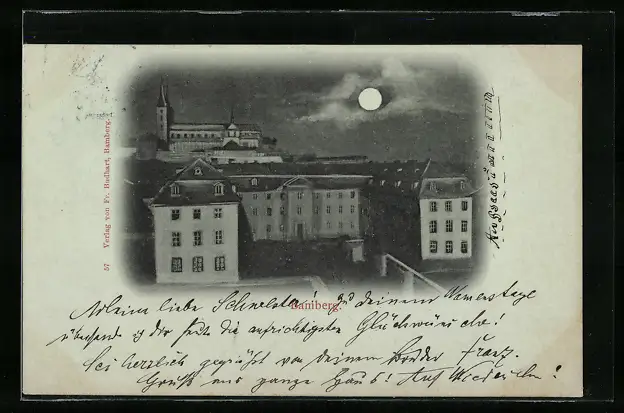 57 Verlag von Fr. Budhart, Bamberg.
Bamberg.
Meine liebe Schwester! Zu deinem Namenstage
übersende ich dir heute die aufrichtigsten Glückwünsche!
Sei herzlich gegrüßt von deinem Bruder Franz.
Gruß ans ganze Haus! Auf Wiedersehen!